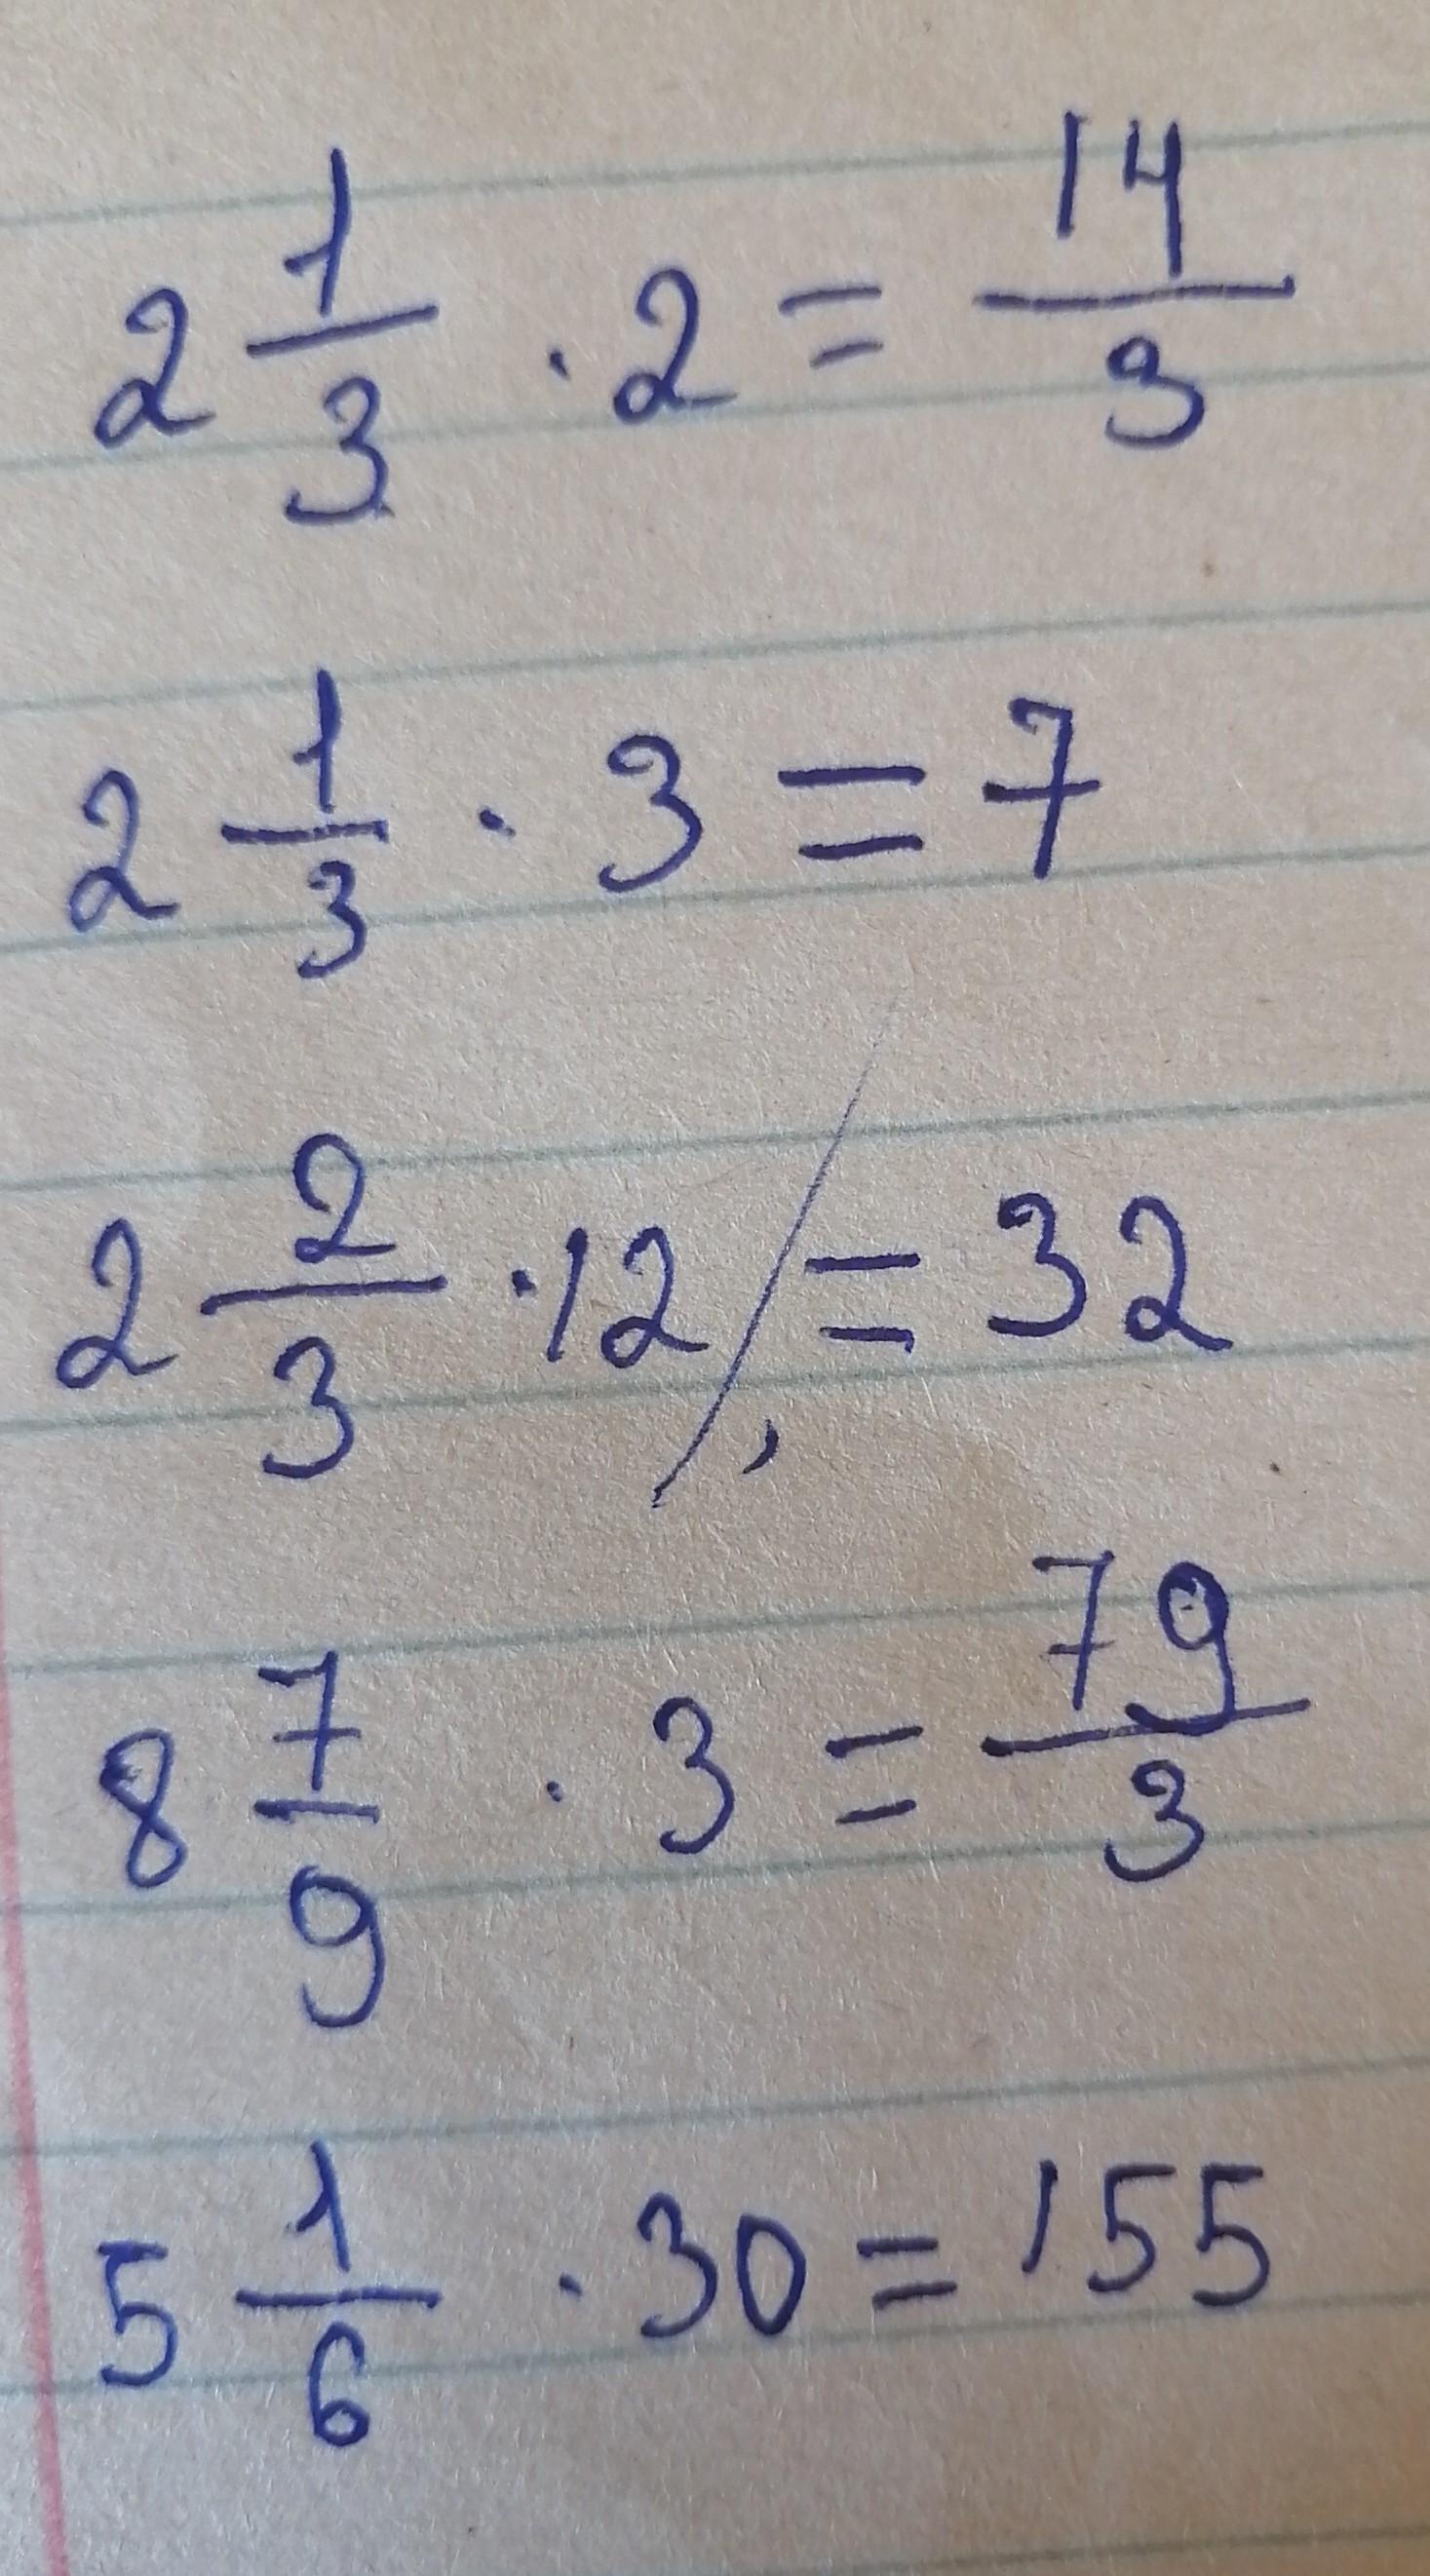 2 1/3 · 2 = 14/3
2 1/3 · 3 = 7
2 2/3 · 12 = 32
8 7/9 · 3 = 79/3
5 1/6 · 30 = 155